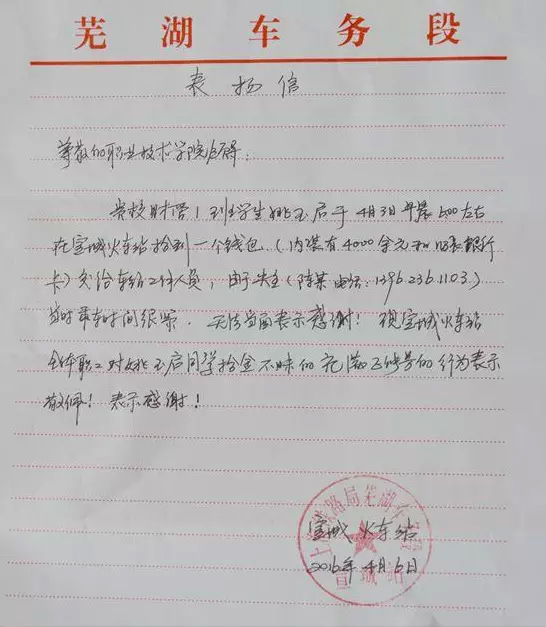 芜湖车务段
表扬信
尊敬的职业技术学院领导:
贵校财管1班学生姚玉启于4月3日早晨5:00左右
在宣城火车站拾到一个钱包(内装有4000余元和张银行
卡)交给车站工作人员,由于失主(陆某电话:1396.236.1103)
当时乘车时间很紧,无法当面表示感谢!现宣城火车站
全体职工对姚玉启同学拾金不昧的充满正能量的行为表示
敬佩!表示感谢!
宣城火车站
2016年4月6日
上海铁路局芜湖车务段
宣城站